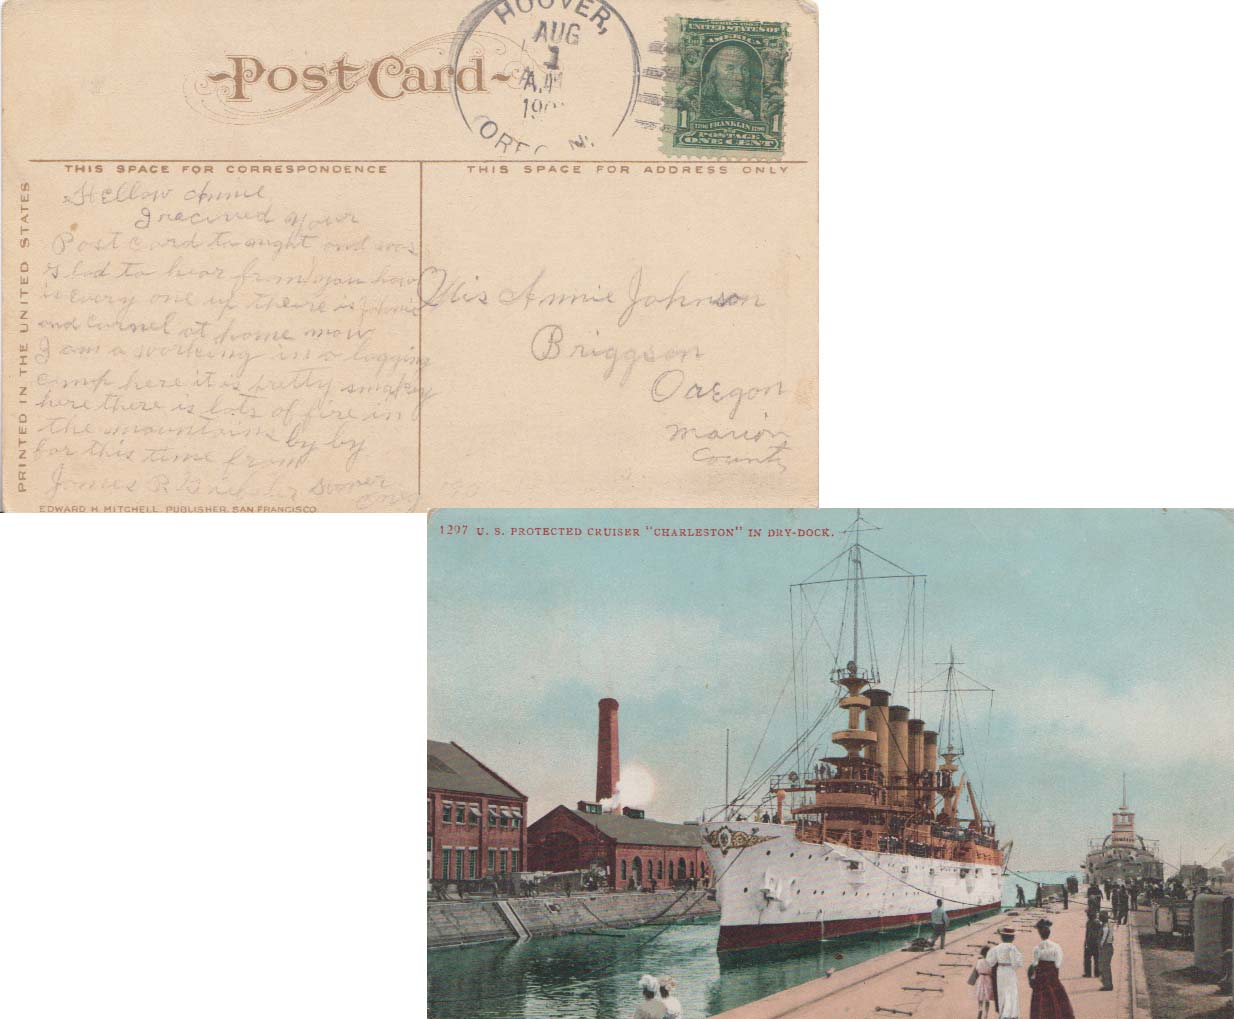 HOOVER,
AUG
1
A.M
190
OREGON.
Post Card
UNITED STATES OF
AMERICA
1706 FRANKLIN 1790
1 POSTAGE 1
ONE CENT
THIS SPACE FOR CORRESPONDENCE
THIS SPACE FOR ADDRESS ONLY
PRINTED IN THE UNITED STATES
Hellow Annie
I recived your
Post card to nught and was
glad to hear from you how
is every one up there is Johnie
and curnel at home now
I am a working in a logging
camp here it is pretty smokey
here there is lots of fire in
the mountains by by
for this time from
James R.
Mis Annie Johnson
Briggson
Oregon
Marion
County
EDWARD H. MITCHELL, PUBLISHER, SAN FRANCISCO
1297 U. S. PROTECTED CRUISER "CHARLESTON" IN DRY-DOCK.